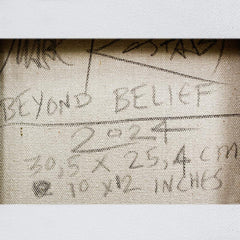 MARK STAB
BEYOND BELIEF
2024
30,5 X 25,4 CM
10 X 12 INCHES